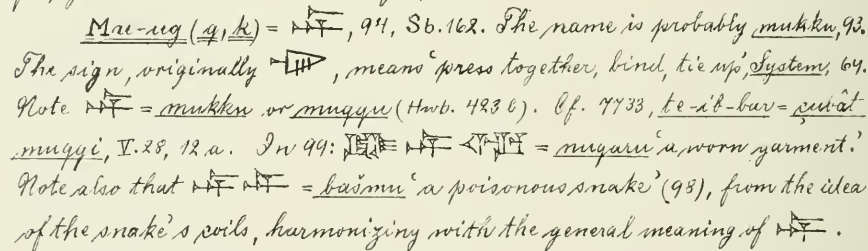 Mu-ug (g, k) = 𒈮, 94, Sb. 162. The name is probably mukku, 93.
The sign, originally , means 'press together, bind, tie up', System, 64.
Note 𒈮 = mukku or muqqu (Hwb. 423 b). Cf. 7733, te-ib-bar = çubât
muqqi, V. 28, 12 a. In 99: 𒈮 = nugaru 'a worn garment.'
Note also that 𒈮 𒈮 = bašmu 'a poisonous snake' (98), from the idea
of the snake's coils, harmonizing with the general meaning of 𒈮.